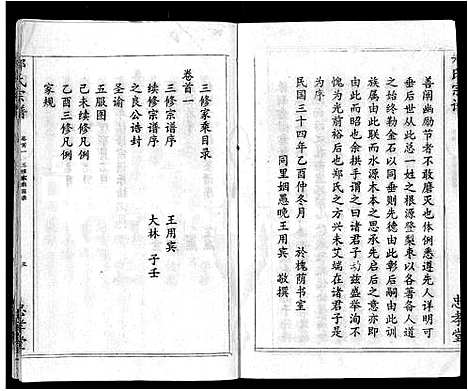 氏宗譜
善闡幽勵節者不敢磨滅也体例悉遵先人詳明可
垂后世从此总一姓之根源登梨枣以各著各人道
之始终勒金石以同垂则先德由此彰后嗣由此训
族属由此联而水源木本之思承先启后之意亦即
由此而昭也余拱手谓之曰诸君子功兹盛举洵不
愧为光前裕后也郑氏之方兴未艾端在诸君子是
为序
民国三十四年乙酉仲冬月 於槐荫书室
同里姻愚晚王用宾 敬撰
忠孝堂
卷首一
三修家乘目录
三修宗谱序 王用宾
续修宗谱序 大林 子壬
之良公诰封
圣谕
五服图
己未续修凡例
乙酉三修凡例
家规
氏宗譜
卷首一 三修家乘目录
忠孝堂